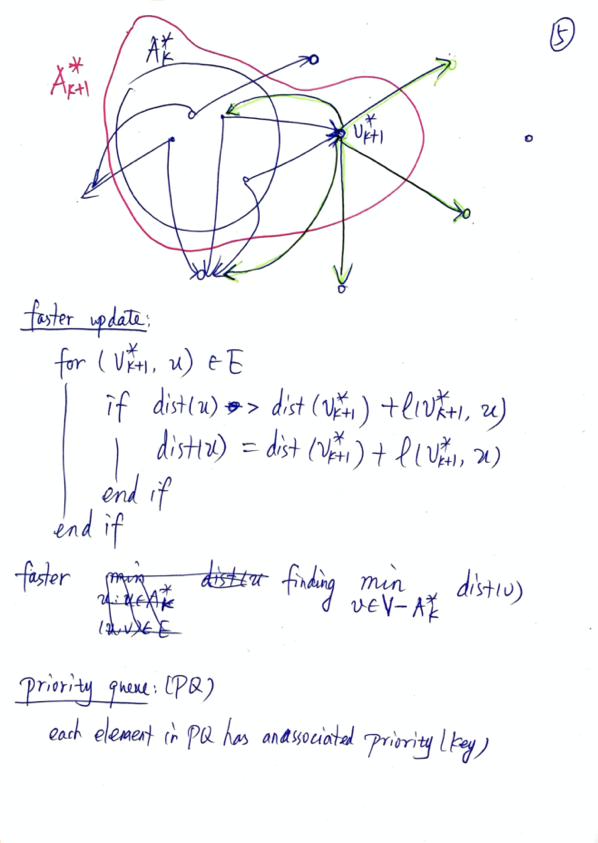 5
A*k
A*k+1
v*k+1
faster update:
for (v*k+1, u) ∈ E
if dist(u) > dist(v*k+1) + l(v*k+1, u)
dist(u) = dist(v*k+1) + l(v*k+1, u)
end if
end if
faster finding min dist(v)
v∈V-A*k
priority queue: (PQ)
each element in PQ has an associated priority (key)